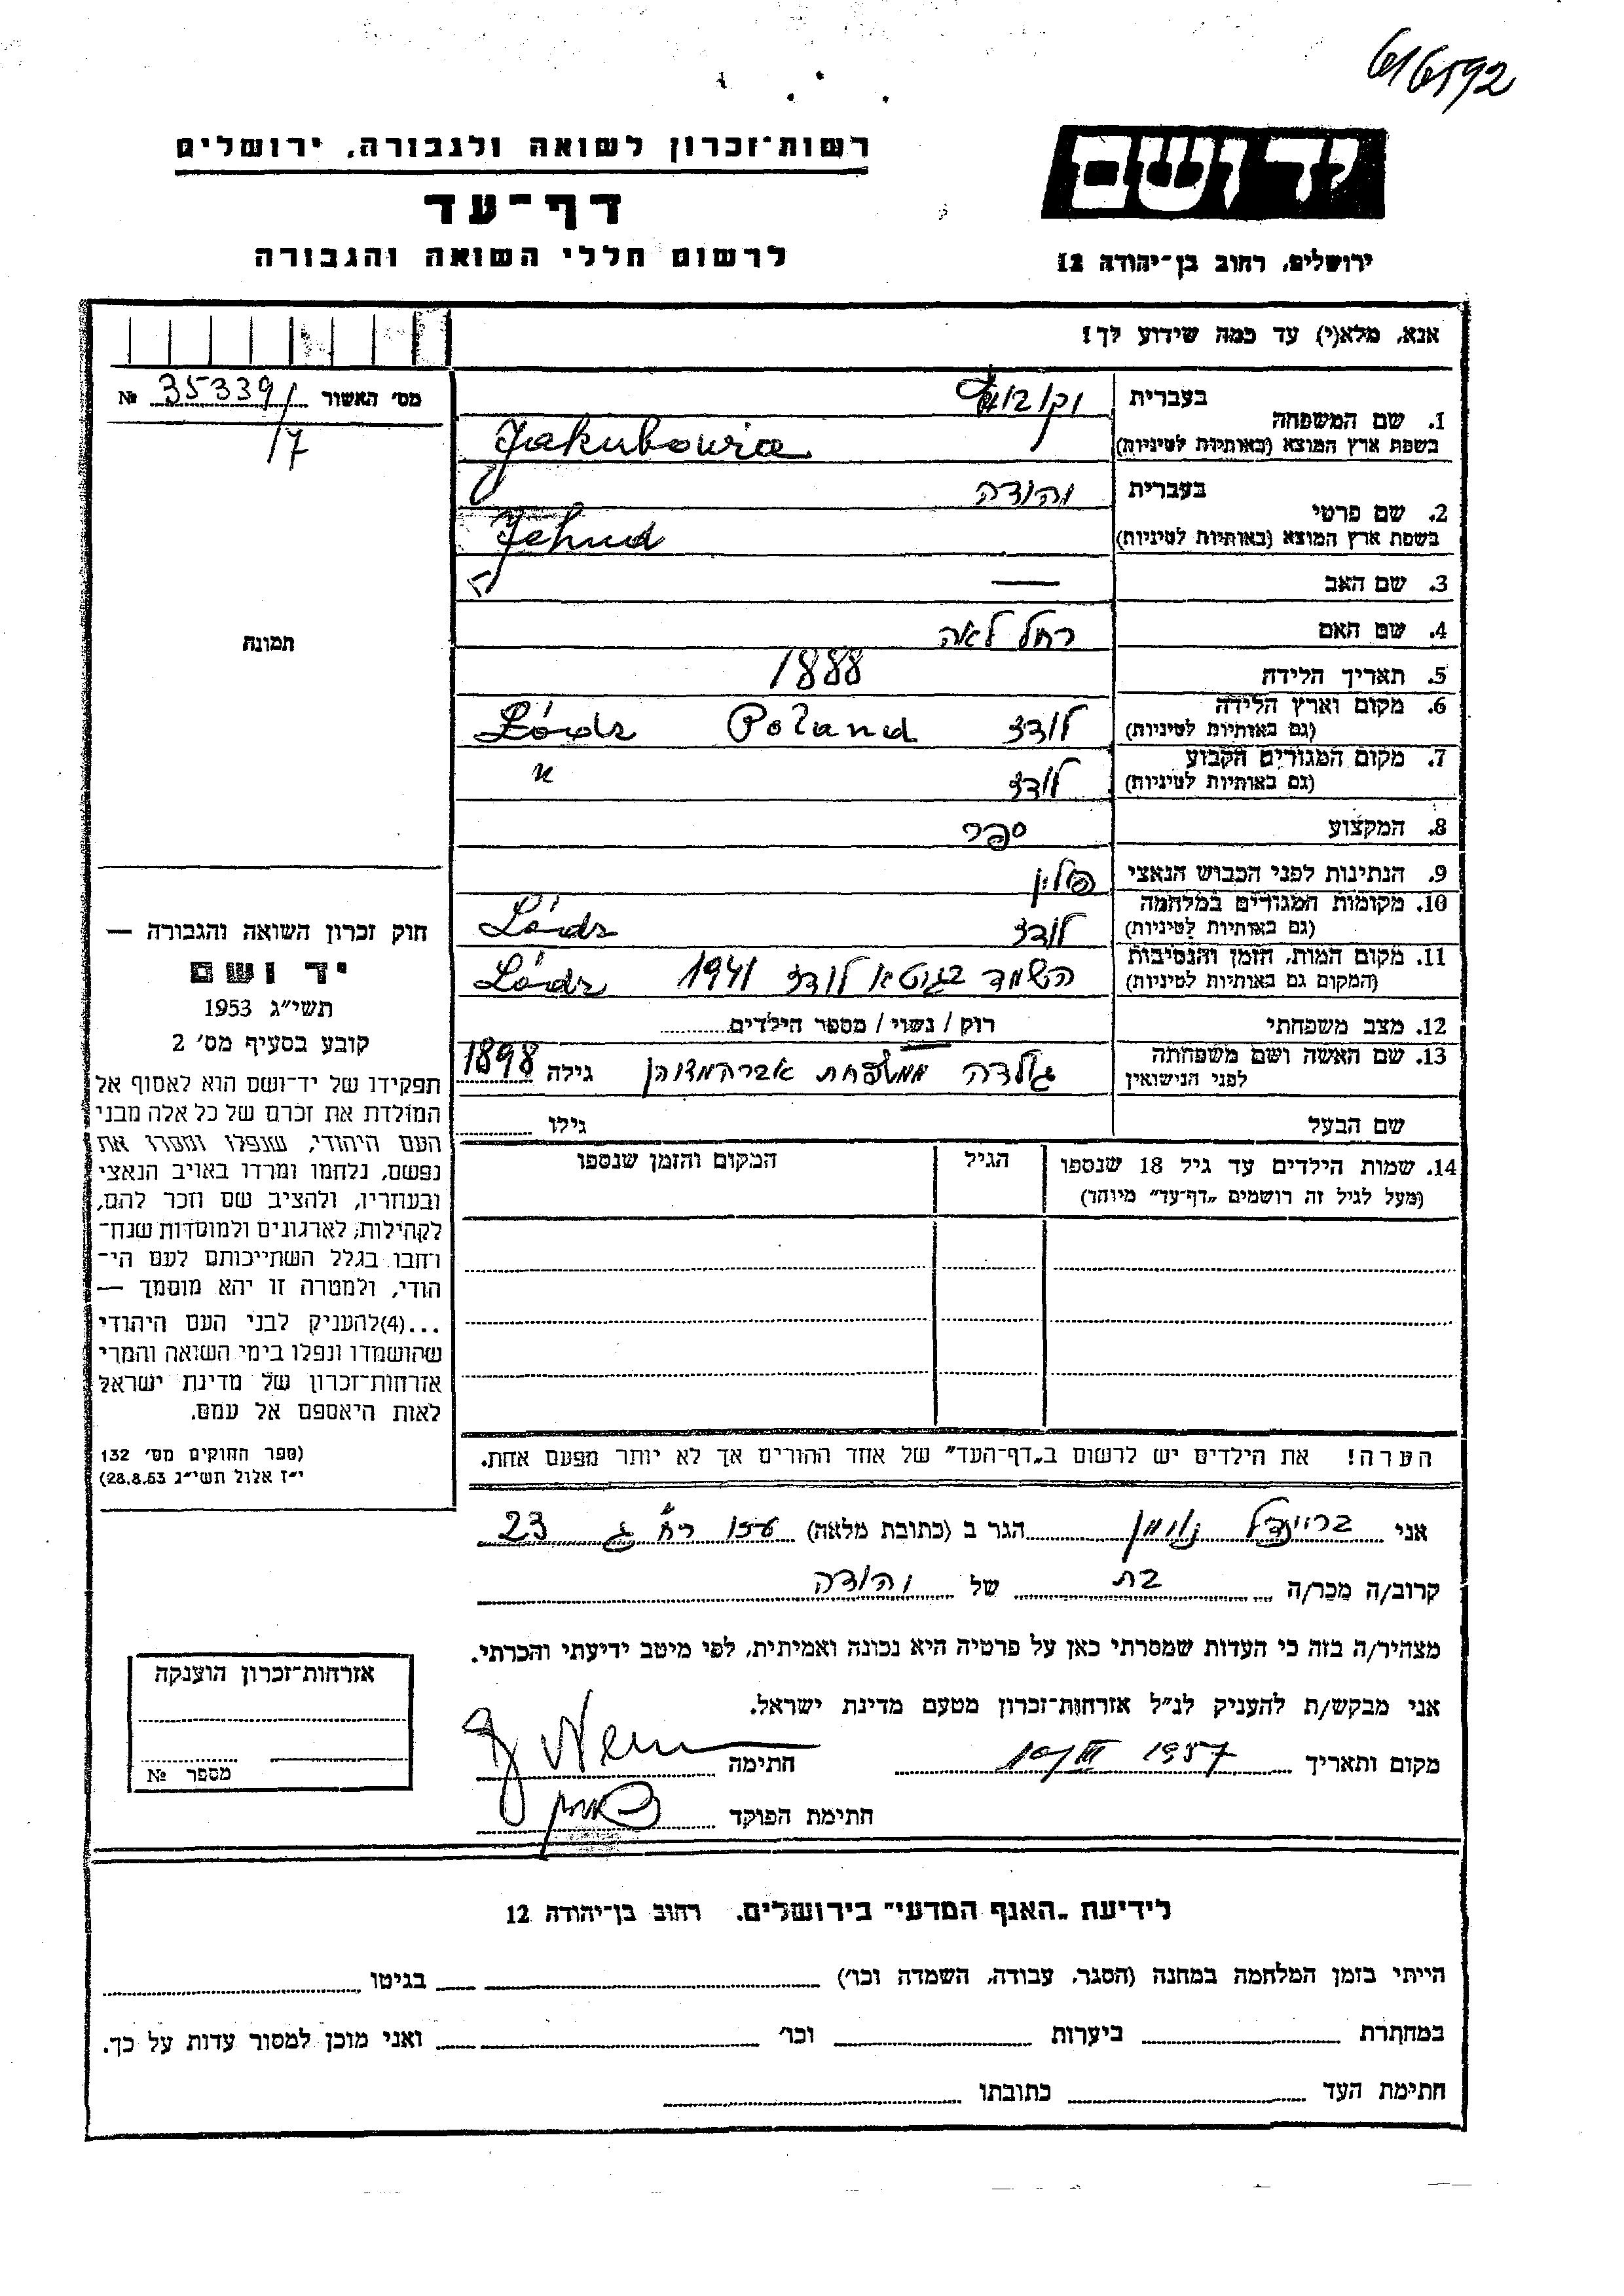 616592
רשות־זכרון לשואה ולגבורה, ירושלים
דף־עד
לרשום חללי השואה והגבורה
יד ושם
ירושלים, רחוב בן־יהודה 12
אנא, מלא(י) עד כמה שידוע לך!
מס׳ האשור 35339/ №
17
תמונה
1. שם המשפחה
בעברית
בשפת ארץ המוצא (באותיות לטיניות) Jakubowicz
2. שם פרטי
בעברית יהודה
בשפת ארץ המוצא (באותיות לטיניות) Jehud
3. שם האב —
4. שם האם רחל לאה
5. תאריך הלידה 1888
6. מקום וארץ הלידה
(גם באותיות לטיניות) לודז Poland Lódz
7. מקום המגורים הקבוע
(גם באותיות לטיניות) לודז "
8. המקצוע ספר
9. הנתינות לפני הכבוש הנאצי פולין
10. מקומות המגורים במלחמה
(גם באותיות לטיניות) לודז Lódz
11. מקום המות, הזמן והנסיבות
(המקום גם באותיות לטיניות) השמד בגטא לודז 1941 Lódz
12. מצב משפחתי רוק / נשוי / מספר הילדים
13. שם האשה ושם משפחתה
לפני הנישואין גולדה ממשפחת גילה 1898
שם הבעל גילו
14. שמות הילדים עד גיל 18 שנספו הגיל המקום והזמן שנספו
(מעל לגיל זה רושמים „דף־עד״ מיוחד)
הערה! את הילדים יש לרשום ב„דף־העד״ של אחד ההורים אך לא יותר מפעם אחת.
חוק זכרון השואה והגבורה —
יד ושם
תשי״ג 1953
קובע בסעיף מס׳ 2
תפקידו של יד־ושם הוא לאסוף אל
המולדת את זכרם של כל אלה מבני
העם היהודי, שנפלו ומסרו את
נפשם, נלחמו ומרדו באויב הנאצי
ובעוזריו, ולהציב שם וזכר להם,
לקהילות, לארגונים ולמוסדות שנח־
רחבו בגלל השתייכותם לעם הי־
הודי, ולמטרה זו יהא מוסמך —
...(4) להעניק לבני העם היהודי
שהושמדו ונפלו בימי השואה והמרי
אזרחות־זכרון של מדינת ישראל
לאות היאספם אל עמם.
(ספר החוקים מס׳ 132
י״ז אלול תשי״ג 28.8.53)
אני בריינדל נוימן הגר ב (כתובת מלאה) 23
קרוב/ה מכר/ה בת של יהודה
מצהיר/ה בזה כי העדות שמסרתי כאן על פרטיה היא נכונה ואמיתית, לפי מיטב ידיעתי והכרתי.
אני מבקש/ת להעניק לנ״ל אזרחות־זכרון מטעם מדינת ישראל.
מקום ותאריך 1957 חתימה
חתימת הפוקד
אזרחות־זכרון הוענקה
מספר №
לידיעת „האגף המדעי״ בירושלים, רחוב בן־יהודה 12
הייתי בזמן המלחמה במחנה (הסגר, עבודה, השמדה וכו׳) בגיטו
במחתרת ביערות וכו׳ ואני מוכן למסור עדות על כך.
חתימת העד כתובתו